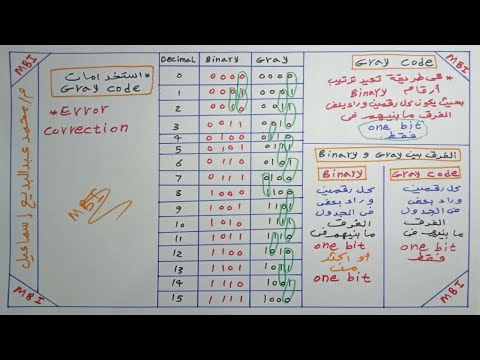 MBI
* استخدامات
Gray code
* Error
correction
MBI
م/محمد عبدالبديع إسماعيل
MBI
Decimal Binary Gray
0 0000 0000
1 0001 0001
2 0010 0011
3 0011 0010
4 0100 0110
5 0101 0111
6 0110 0101
7 0111 0100
8 1000 1100
9 1001 1101
10 1010 1111
11 1011 1110
12 1100 1010
13 1101 1011
14 1110 1001
15 1111 1000
MBI
Gray code
* هى طريقة تعيد ترتيب
أرقام Binary
بحيث يكون كل رقمين وراء بعض
الفرق ما بينهم فى
one bit
فقط
الفرق بين Gray و Binary
Gray code
كل رقمين
وراء بعض
فى الجدول
الفرق
ما بينهم فى
one bit
فقط
Binary
كل رقمين
وراء بعض
فى الجدول
الفرق
ما بينهم فى
one bit
أو أكثر
من
one bit
MBI